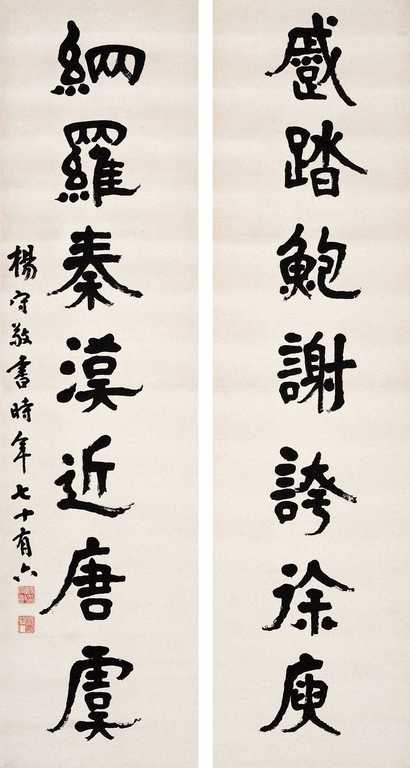 蹙踏鮑謝誇徐庾
網羅秦漢近唐虞
楊守敬書時年七十有六